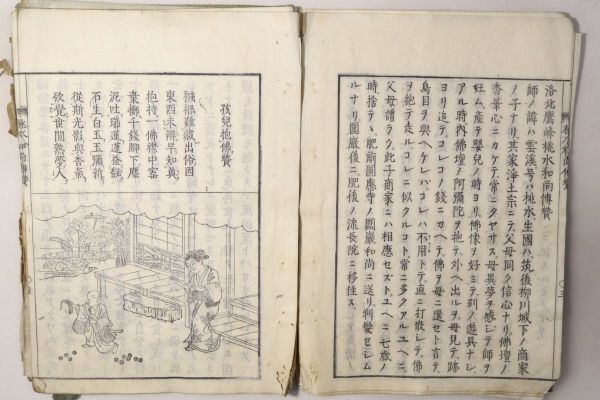 洛北鷹峰桃水和尚傳賛
師ノ諱ハ雲溪号ハ桃水生國ハ筑後柳川城下ノ商家
ノ子ナリ其家浄土宗ニテ父母同ク信心ナリ佛壇ノ
香華心ニカケテ常ニタヤサス母異夢ヲ感シテ師ヲ
妊ム産テ嬰兒ノ時ヨリ佛像ヲ好ミテ別ノ遊具ナシ
アル時内佛壇ノ阿彌陀ヲ抱テ外ヘ出ルヲ母見テ跡
ヨリ追テコレコノ錢ニカヘテ佛ヲ母ニ還セト言テ
鳥目ヲ與ヘケレバコレハ不用トテ直ニ打散シテ佛
ヲ抱テ走ルコレニ似クルコト常ニ多クアルユヘニ
父母譜ラク此子商家ニハ相應セズトユヘニ七歳ノ
時捨テヽ肥前圓應寺ノ圍巖和尚ニ送リ剃髮セシム
ルナリ圍巖後ニ肥後ノ流長院ニ移住ス
孩兒抱佛賛
襁褓難藏出俗因
東西未辨早知真
抱持一佛襟中客
棄擲千錢脚下塵
泥吐瑞蓮蓮盖馥
石生白玉玉彌新
從斯光影與香氣
欲覺世間熟夢人